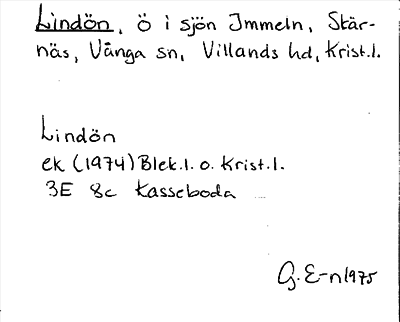 Lindön, ö i sjön Immeln, Skär-
näs, Vånga sn, Villands hd, Krist.l.
Lindön
ek (1974) Blek.l. o. Krist.l.
3E 8c Kasseboda
G. E-n 1975